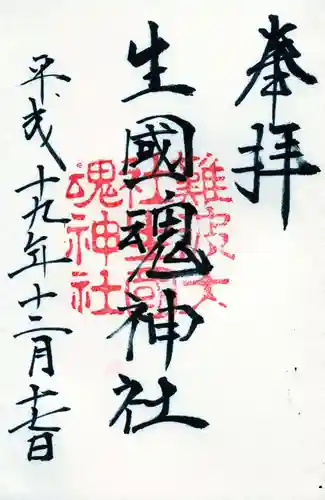 奉拝
生國魂神社
難波大社生國魂神社
平成十九年十二月十七日